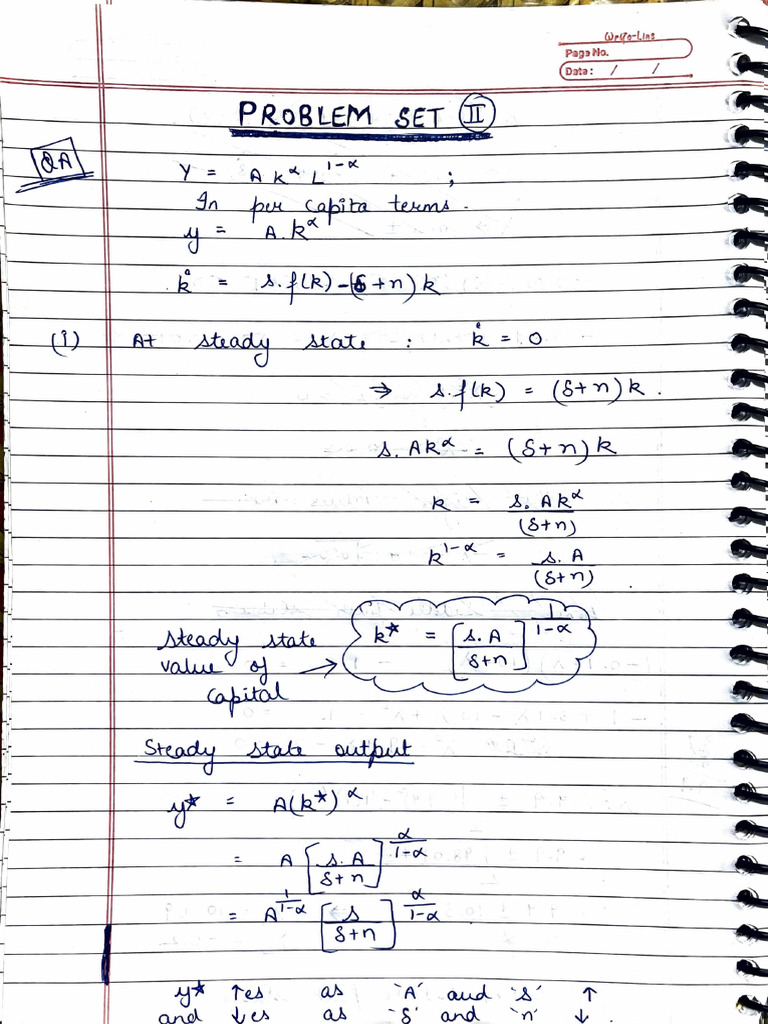 Write-Line
Page No.
Date: / /
PROBLEM SET II
QA
Y = A K^α L^{1-α} ;
In per capita terms.
y = A.k^α
k̊ = s.f(k) - (δ+n) k
(i) At steady state : k̊ = 0
⇒ s.f(k) = (δ+n) k.
s. Ak^α = (δ+n) k
k = s. Ak^α / (δ+n)
k^{1-α} = s. A / (δ+n)
steady state value of capital → k* = [s.A / δ+n]^{1/1-α}
Steady state output
y* = A(k*)^α
= A [s.A / δ+n]^{α/1-α}
= A^{1/1-α} [s / δ+n]^{α/1-α}
y* ↑es as 'A' and 's' ↑
and ↓es as 'δ' and 'n' ↓.